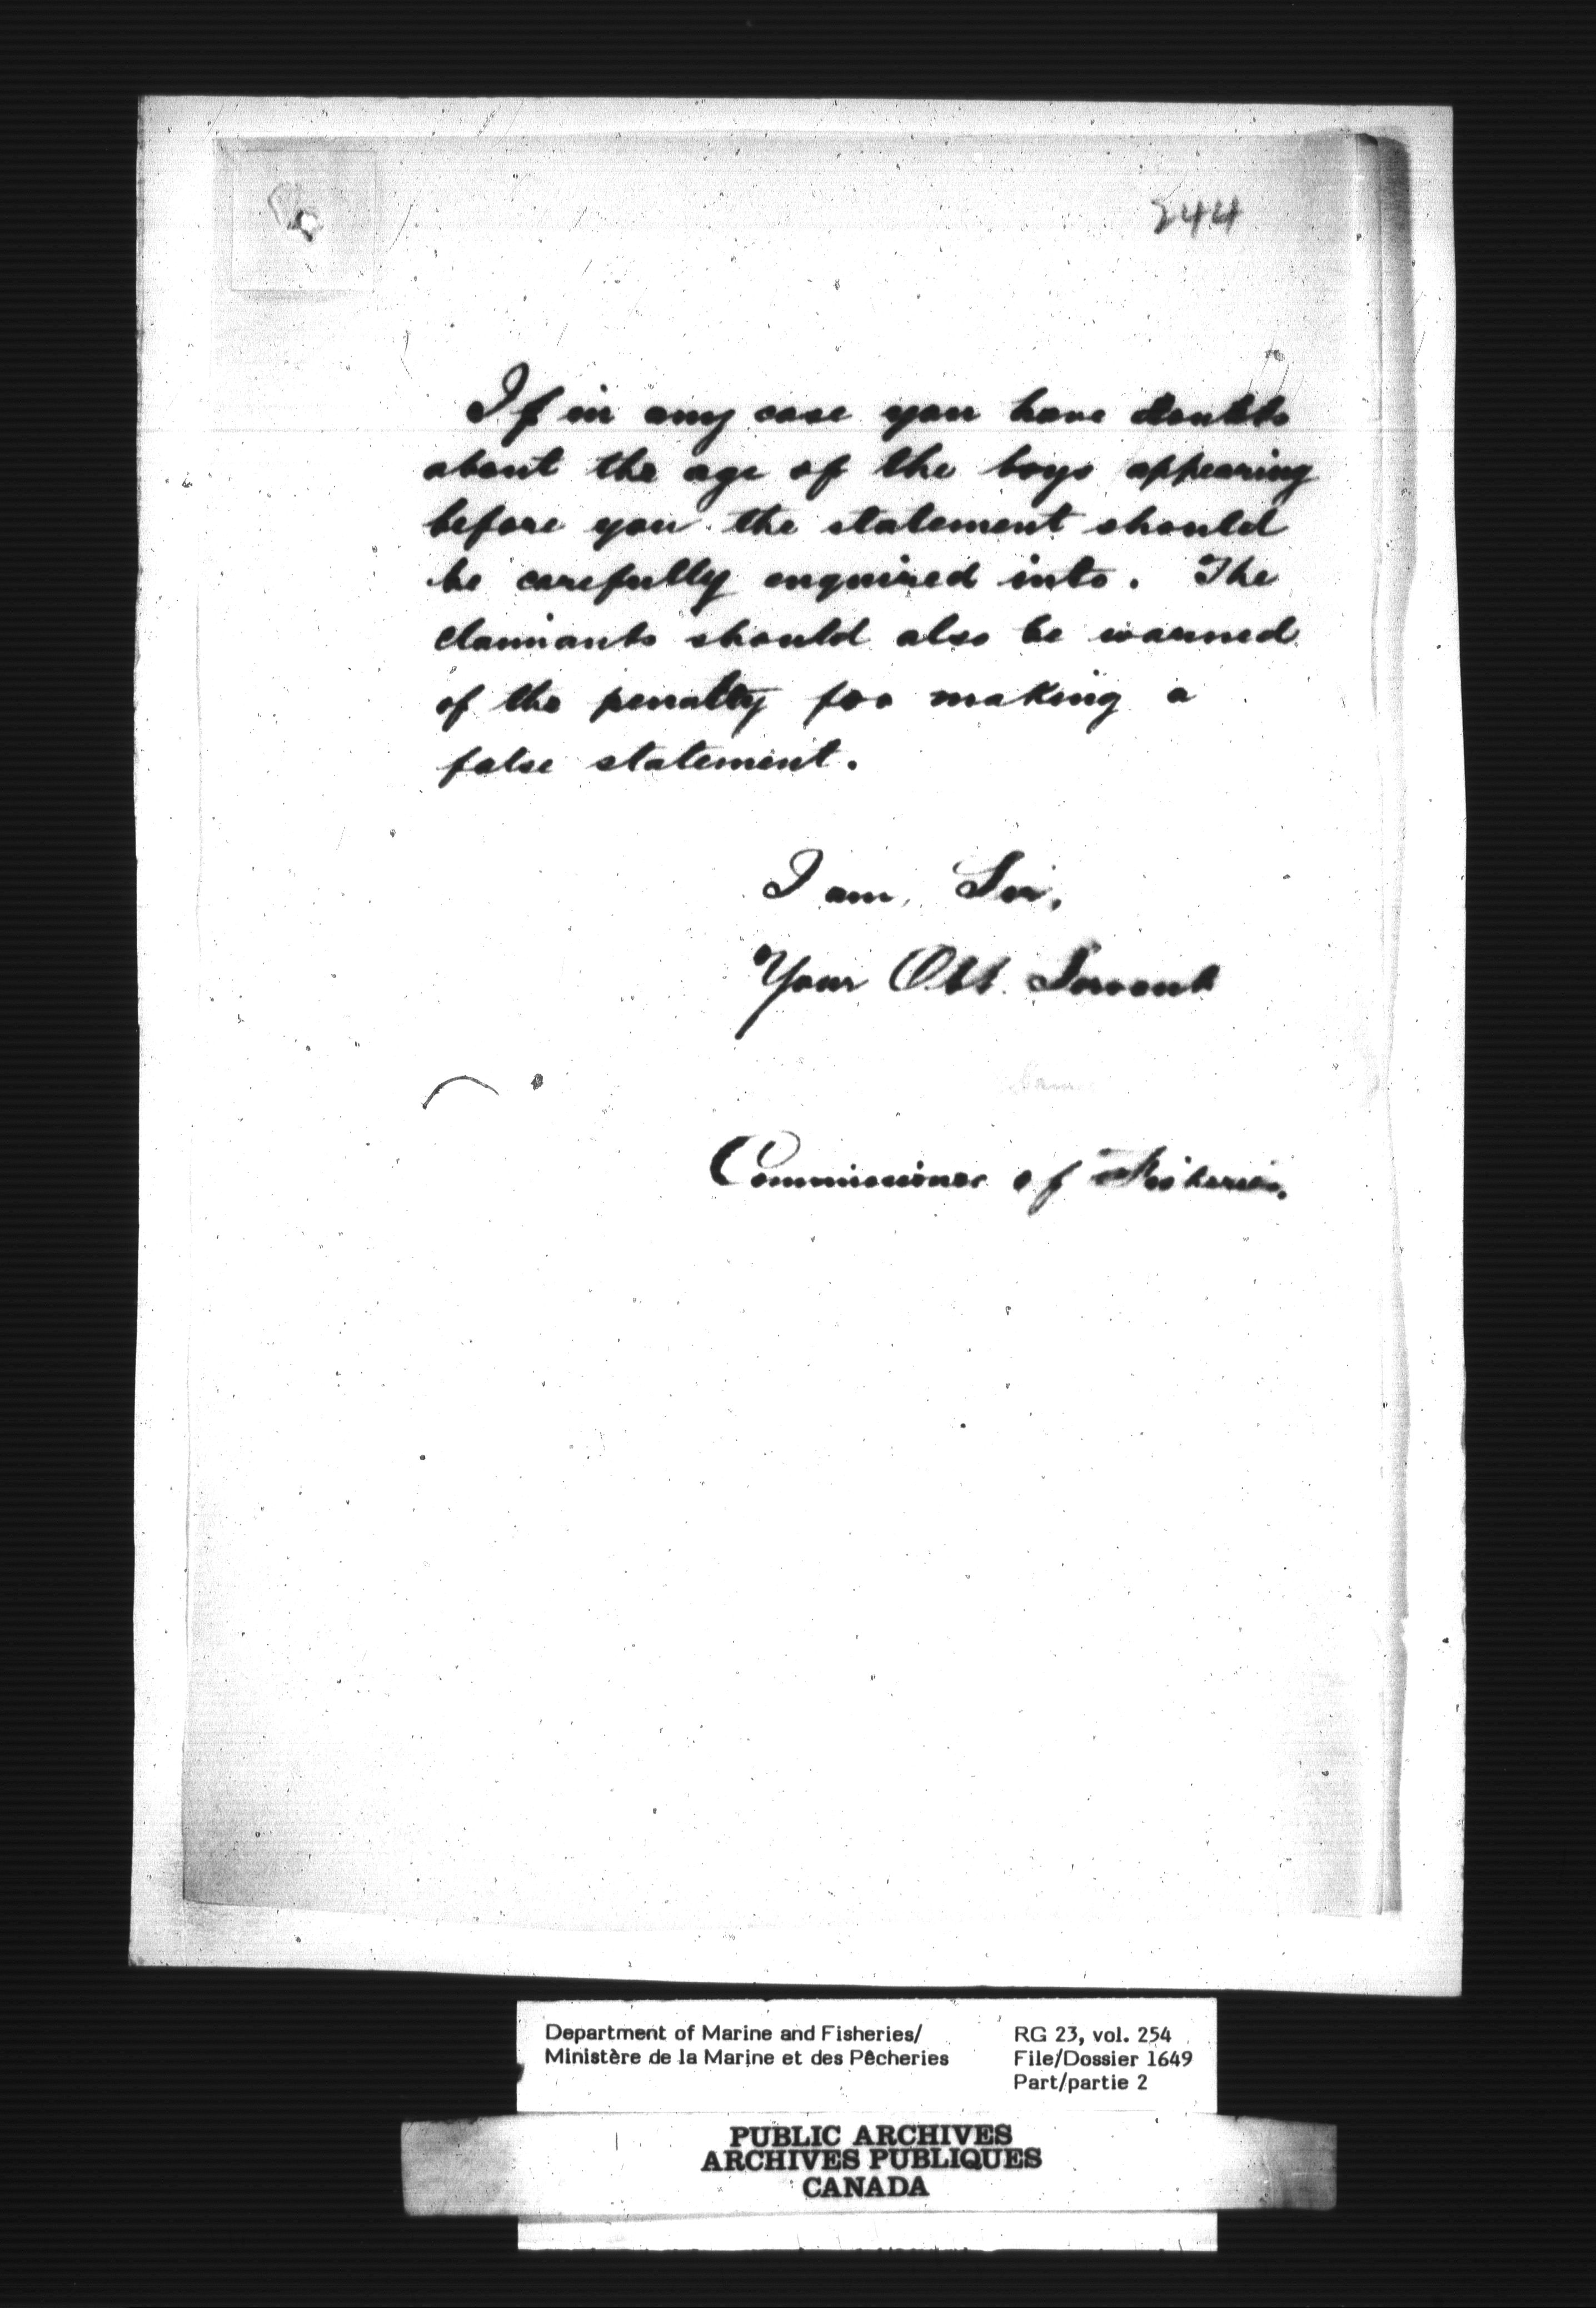 244
If in any case you have doubts
about the age of the boys appearing
before you the statement should
be carefully enquired into. The
claimants should also be warned
of the penalty for making a
false statement.
I am, Sir,
Your Obt. Servant
Commissioner of Fisheries.
Department of Marine and Fisheries/
Ministère de la Marine et des Pêcheries
RG 23, vol. 254
File/Dossier 1649
Part/partie 2
PUBLIC ARCHIVES
ARCHIVES PUBLIQUES
CANADA